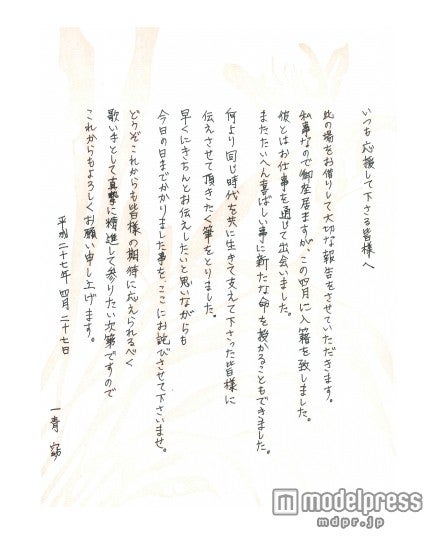 いつも応援して下さる皆様へ
此の場をお借りして大切な報告をさせていただきます。
私事なので御座居ますが、この四月に入籍を致しました。
彼とはお仕事を通じて出会いました。
またたいへん喜ばしい事に新たな命を授かることもできました。
何より同じ時代を共に生きて支えて下さった皆様に
伝えさせて頂きたく筆をとりました。
早くにきちんとお伝えしたいと思いながらも
今日の日までかかりました事を、ここにお詫びさせて下さいませ。
どうぞこれからも皆様の期待に応えられるべく
歌い手として真摯に精進して参りたい次第ですので
これからもよろしくお願い申し上げます。
平成二十七年四月二十七日
一青窈
modelpress
mdpr.jp